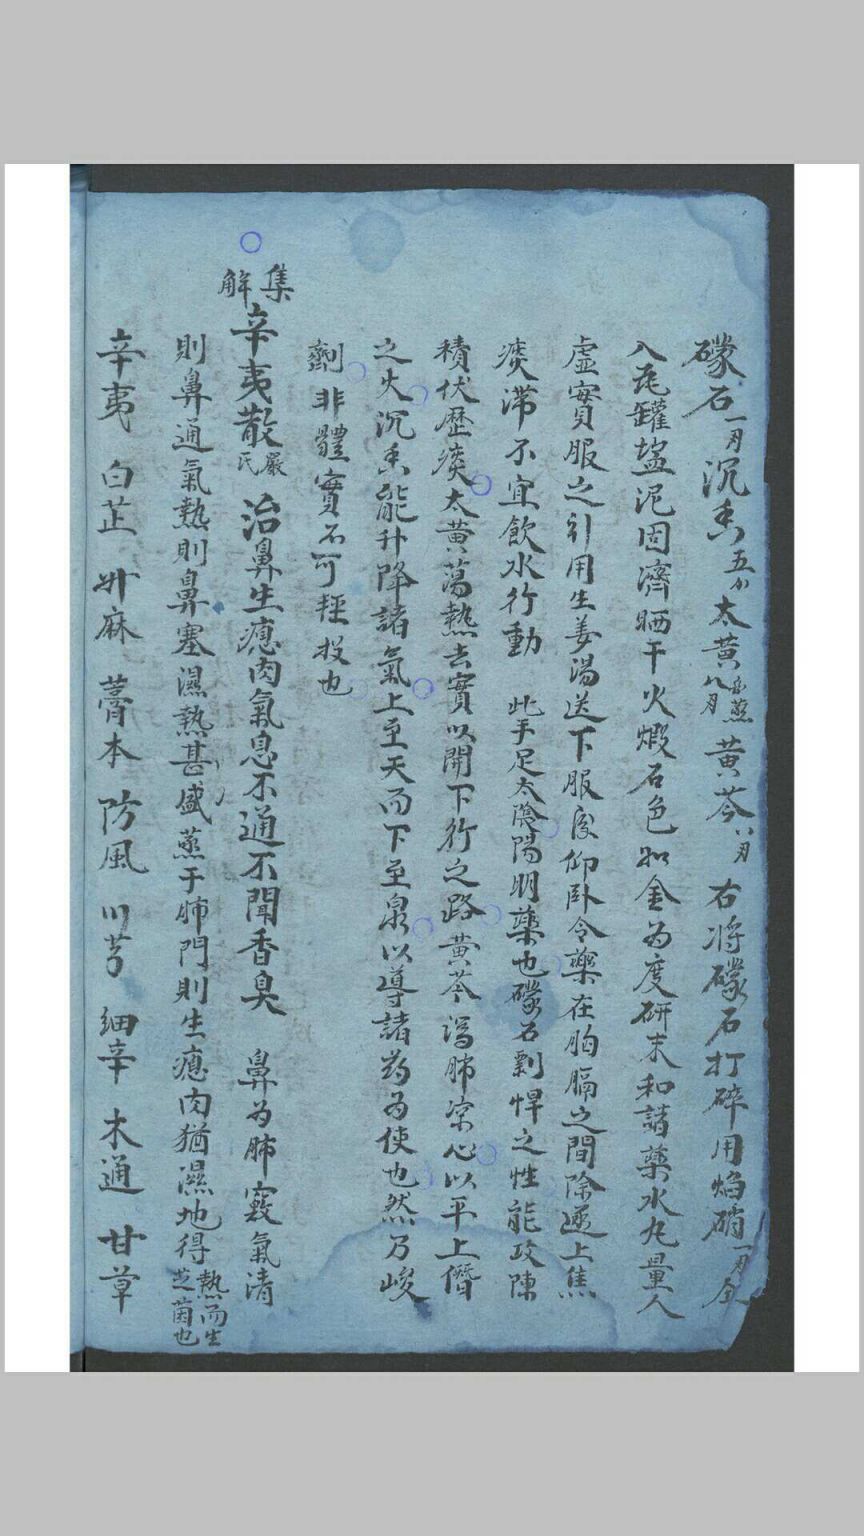 礞石一月沉香五分大黃酒蒸八月黃芩八月 右將礞石打碎用焰硝一月全
入瓦罐塩泥固濟晒干火煅石色如金为度研末和諸藥水丸量人
虛實服之引用生姜湯送下服後仰卧令藥在胸膈之間除逐上焦
痰滞不宜飲水行動 此手足太陰陽明藥也礞石剽悍之性能攻陳
積伏歷痰大黄蕩热去實以開下行之路黄芩瀉肺凉心以平上僭
之火沉香能升降諸氣上至天而下至泉以導諸药为使也然乃峻
劑非體實不可輕投也
集解
辛夷散嚴氏 治鼻生瘜肉氣息不通不聞香臭 鼻为肺竅氣清
則鼻通氣熱則鼻塞濕熱甚盛蒸于肺門則生瘜肉猶濕地得熱而生芝菌也
辛夷 白芷 升麻 藁本 防風 川芎 細辛 木通 甘草